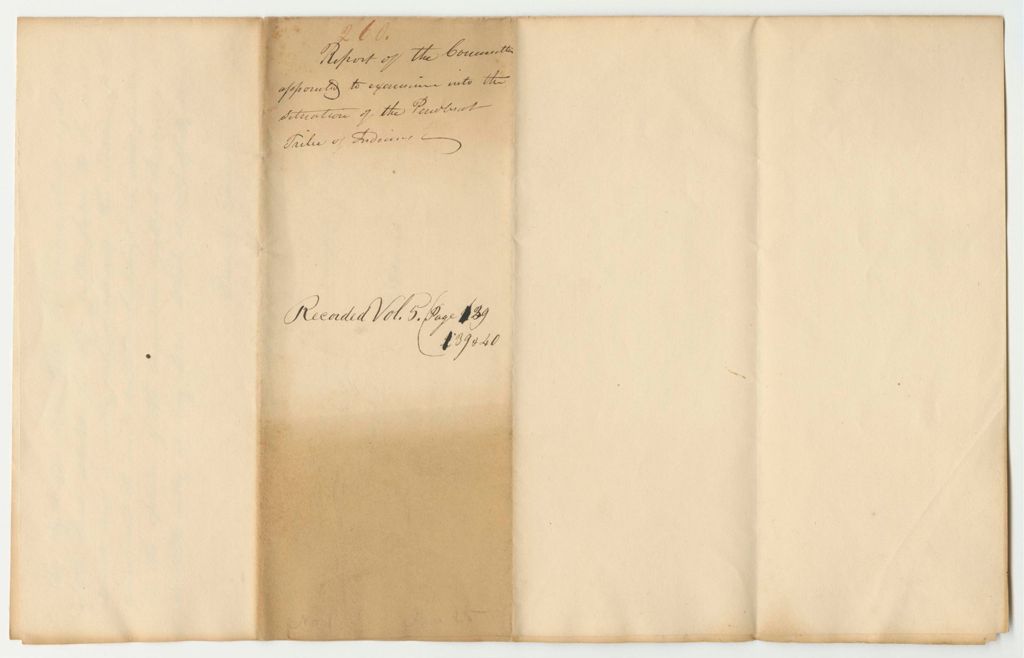 260.
Report of the Committee
appointed to examine into the
situation of the Penobscot
Tribe of Indians
Recorded Vol. 5. Page 139
139 & 40